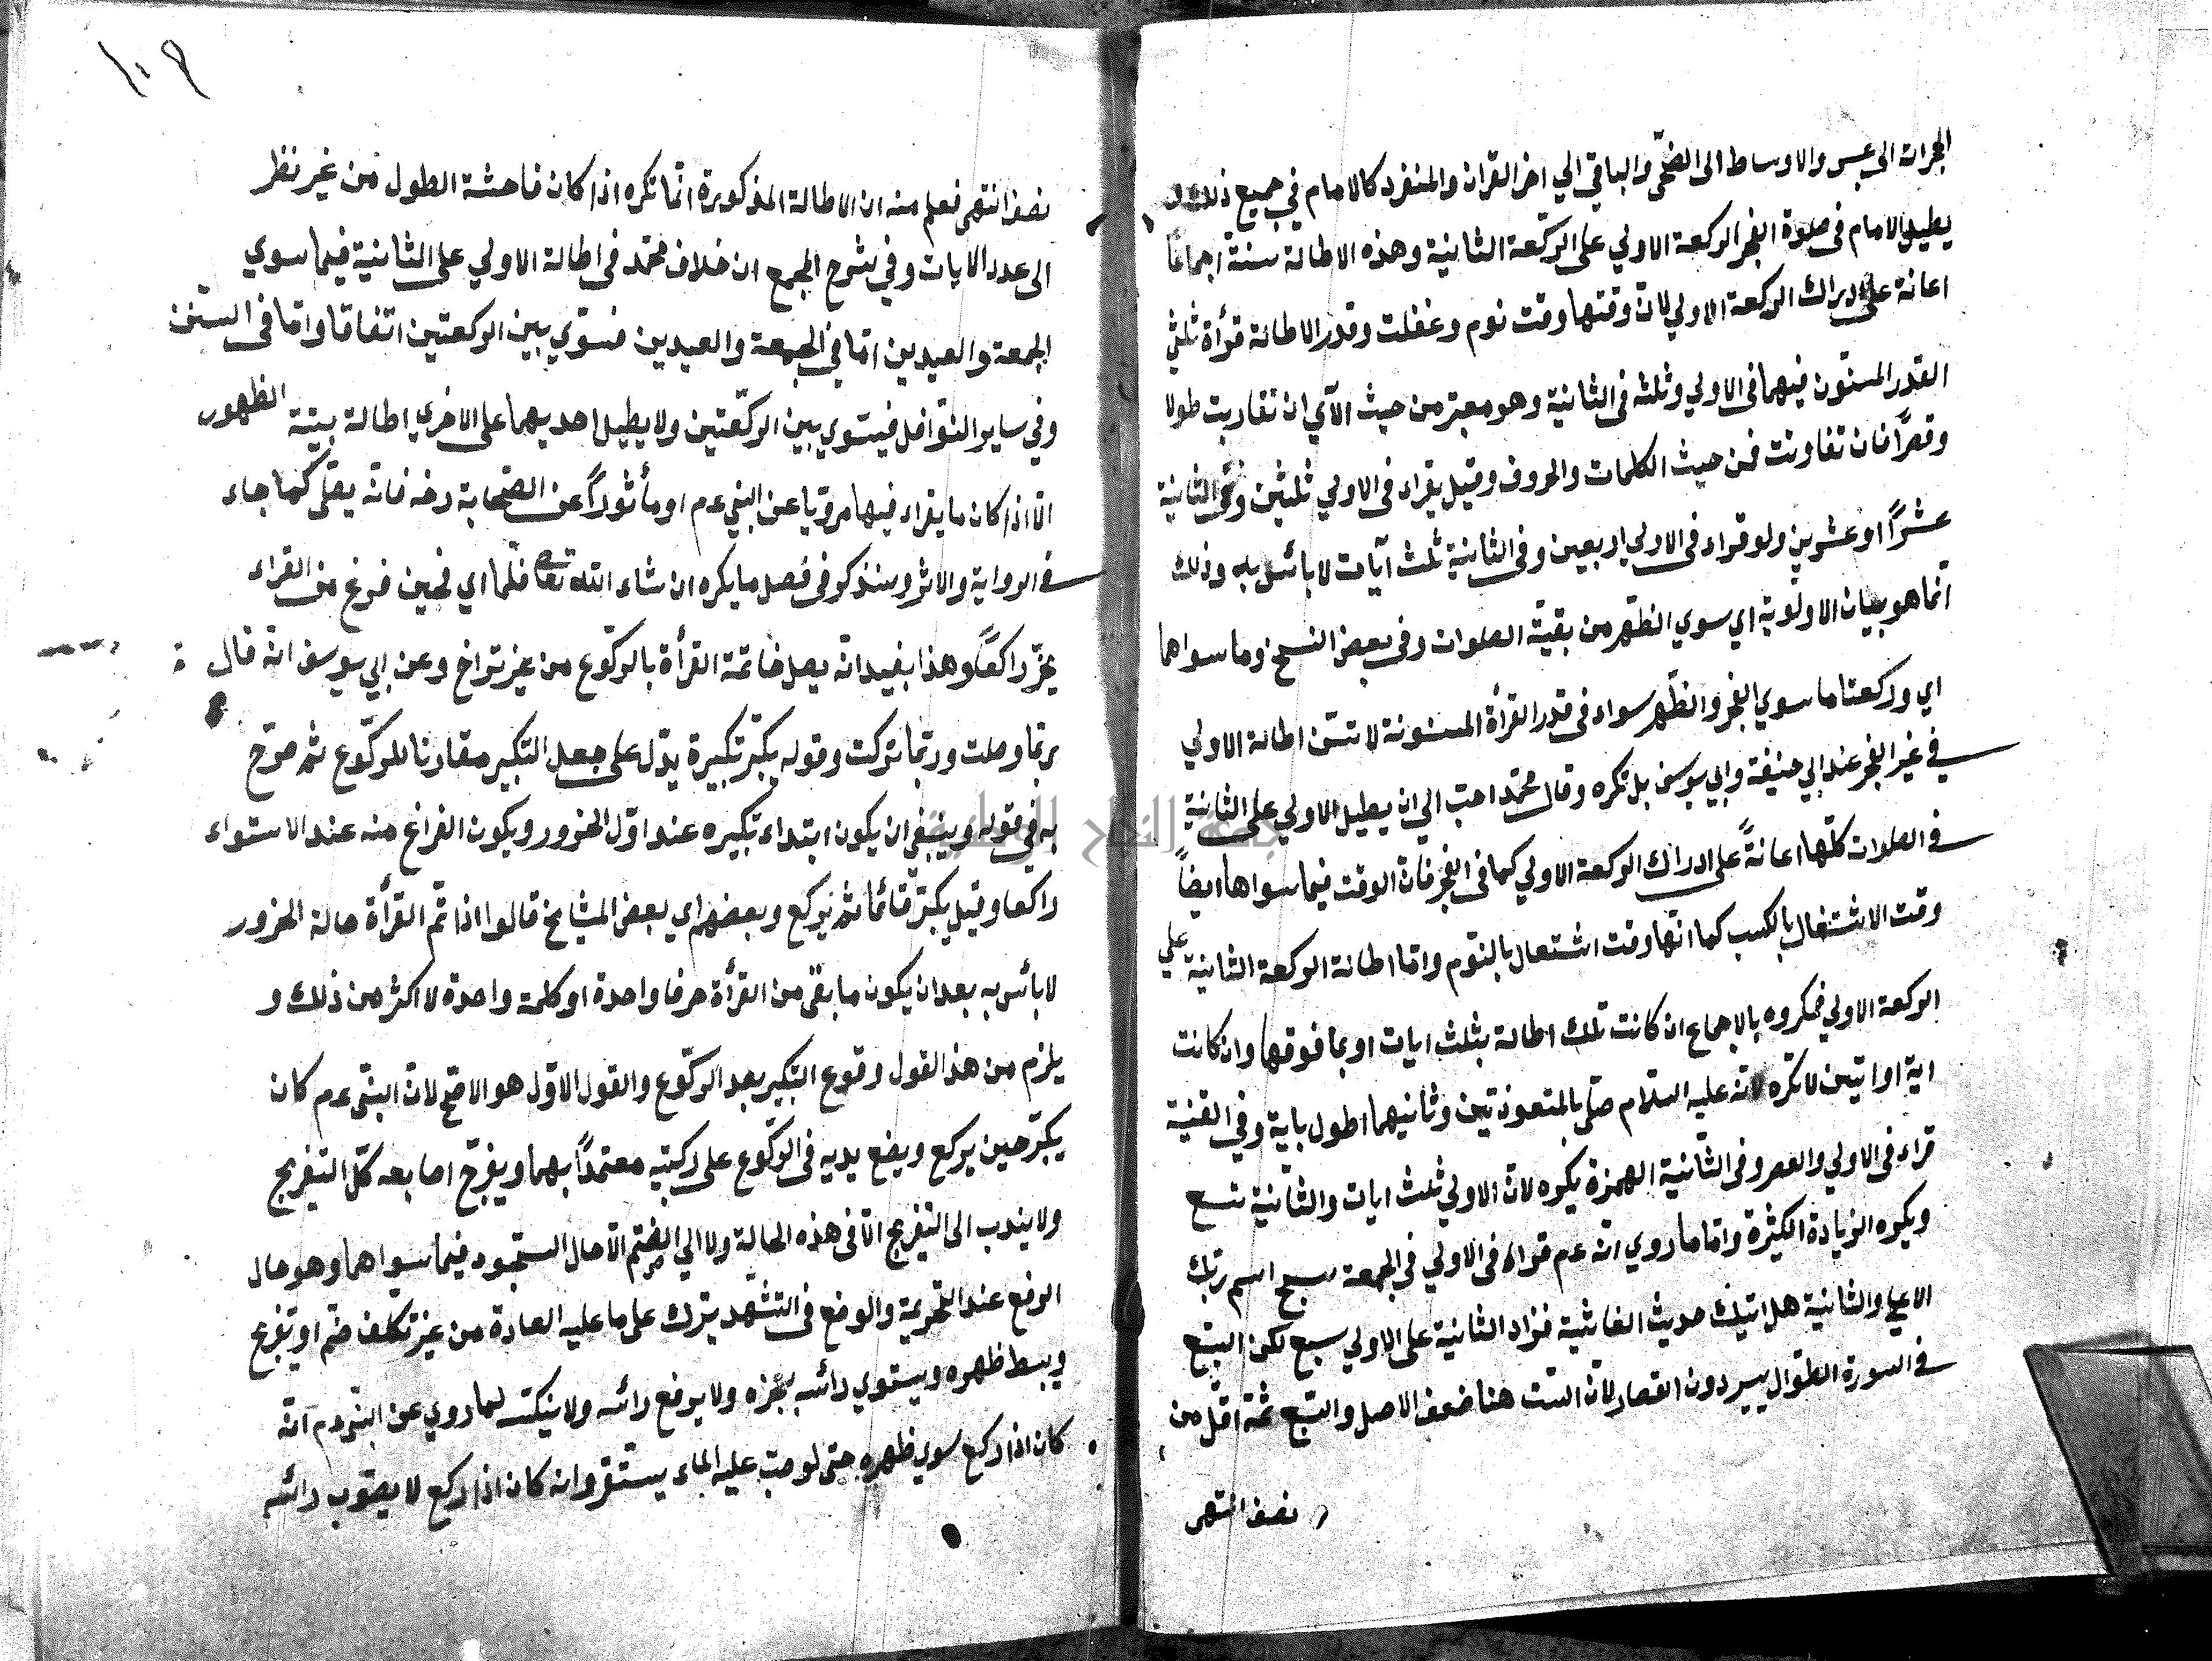 الحجرات الى عبس والاوساط الى الضحى والباقي الي اخر القران والمنفرد كالامام في جميع ذلك و
يطيل الامام في صلوة الفجر الركعة الاولي على الركعة الثانية وهذه الاطالة سنة اجماعا
اعانة على ادراك الركعة الاولي لان وقتها وقت نوم وغفلت وقدر الاطالة قرأة ثلثي
القدر المسنون فيهما في الاولي وثلثه في الثانية وهو معتبر من حيث الآي ان تقاربت طولا
وقصرًا فان تفاوتت فمن حيث الكلمات والحروف وقيل يقراء في الاولي ثلثين وفي الثانية
عشرًا او عشرين ولو قراء في الاولي اربعين وفي الثانية ثلث آيات لا بائس به وذلك
انما هو بيان الاولوية اي سوي الظهر من بقية الصلوات وفي بعض النسخ وما سواهما
اي وركعتا ما سوي الفجر والظهر سواء في قدر القرأة المسنونة لا تسن اطالة الاولي
في غير الفجر عند ابي حنيفة وابي يوسف بل تكره وقال محمد احب الي ان يطيل الاولي على الثانية
في الصلوات كلها اعانةً على ادراك الركعة الاولي كما في الفجر فان الوقت فيما سواها ايضاً
وقت الاشتغال بالكسب كما انها وقت اشتعال بالنوم واما اطالة الركعة الثانية علي
الركعة الاولي فمكروه بالاجماع ان كانت تلك اطالة بثلث ايات او بما فوقها وان كانت
اية او ايتين لا تكره لانه عليه السلام صلى بالمتعوذتين وثانيهما اطول باية وفي القنية
قراء في الاولي والعصر وفي الثانية الهمزة يكره لان الاولي ثلث ايات والثانية تسع
ويكره الزيادة الكثيرة واما ما روي انه عم قراء في الاولي في الجمعة سبح اسم ربك
الاعلي والثانية هل اتيك حديث الغاشية فزاد الثانية على الاولي سبع لكن السبع
في السورة الطوال يسير دون القصار لان الست هنا ضعف الاصل والسبع ثمة اقل من
نصف انتهى
١٠٩
نصف انتهى فعلم منه ان الاطالة المذكورة انما تكره اذا كان فاحشة الطول من غير نظر
الى عدد الايات وفي شرح المجمع ان خلاف محمد في اطالة الاولي على الثانية فيما سوي
الجمعة والعيدين اما في الجمعة والعيدين فسوي بين الركعتين اتفاقا واما في السنن
وفي ساير النوافل فيستوي بين الركعتين ولا يطيل احديهما على الاخري اطالة بينة الظهور
الا اذا كان ما يقراء فيها مرويا عن النبي عم او مأثوراً عن الصحابة رضه فانه يصلي كما جاء
في الرواية والاثر وسنذكر في فصل ما يكره ان شاء الله تعا فلما اي فحين فرغ من القراء
يخر راكعاً وهذا يفيد انه يصل خاتمة القرأة بالركوع من غير تراخ وعن ابي يوسف انه قال
ربما وصلت وربما تركت وقوله يكبر تكبيرة يدل على جعل التكبير مقارنا للركوع ثم صرح
به في قوله وينبغي ان يكون ابتداء تكبيره عند اول الخرور ويكون الفراغ منه عند الاستواء
راكعا وقيل يكبر قائما ثم يركع وبعضهم اي بعض المشايخ قالوا اذا تم القرأة حالة الخرور
لا بائس به بعد ان يكون ما بقي من القرأة حرفا واحدة او كلمة واحدة لا اكثر من ذلك و
يلزم من هذا القول وقوع التكبير بعد الركوع والقول الاول هو الاصح لان النبي عم كان
يكبر حين يركع ويضع يديه في الركوع على ركبتيه معتمداً بهما ويفرج اصابعه كل التفريج
ولا يندب الى التفريج الا في هذه الحالة ولا الي الضم الا حال السجود فيما سواهما وهو حال
الرفع عند التحريمة والوضع في التشهد يترك على ما عليه العادة من غير تكلف ضم او تفريج
ويبسط ظهره ويستوي رائسه بعجزه ولا يرفع رائسه ولا ينكسه لما روي عن النبي عم انه
كان اذا ركع سوي ظهره حتى لو صب عليه الماء يستقر وانه كان اذا ركع لا يصوب رائسه